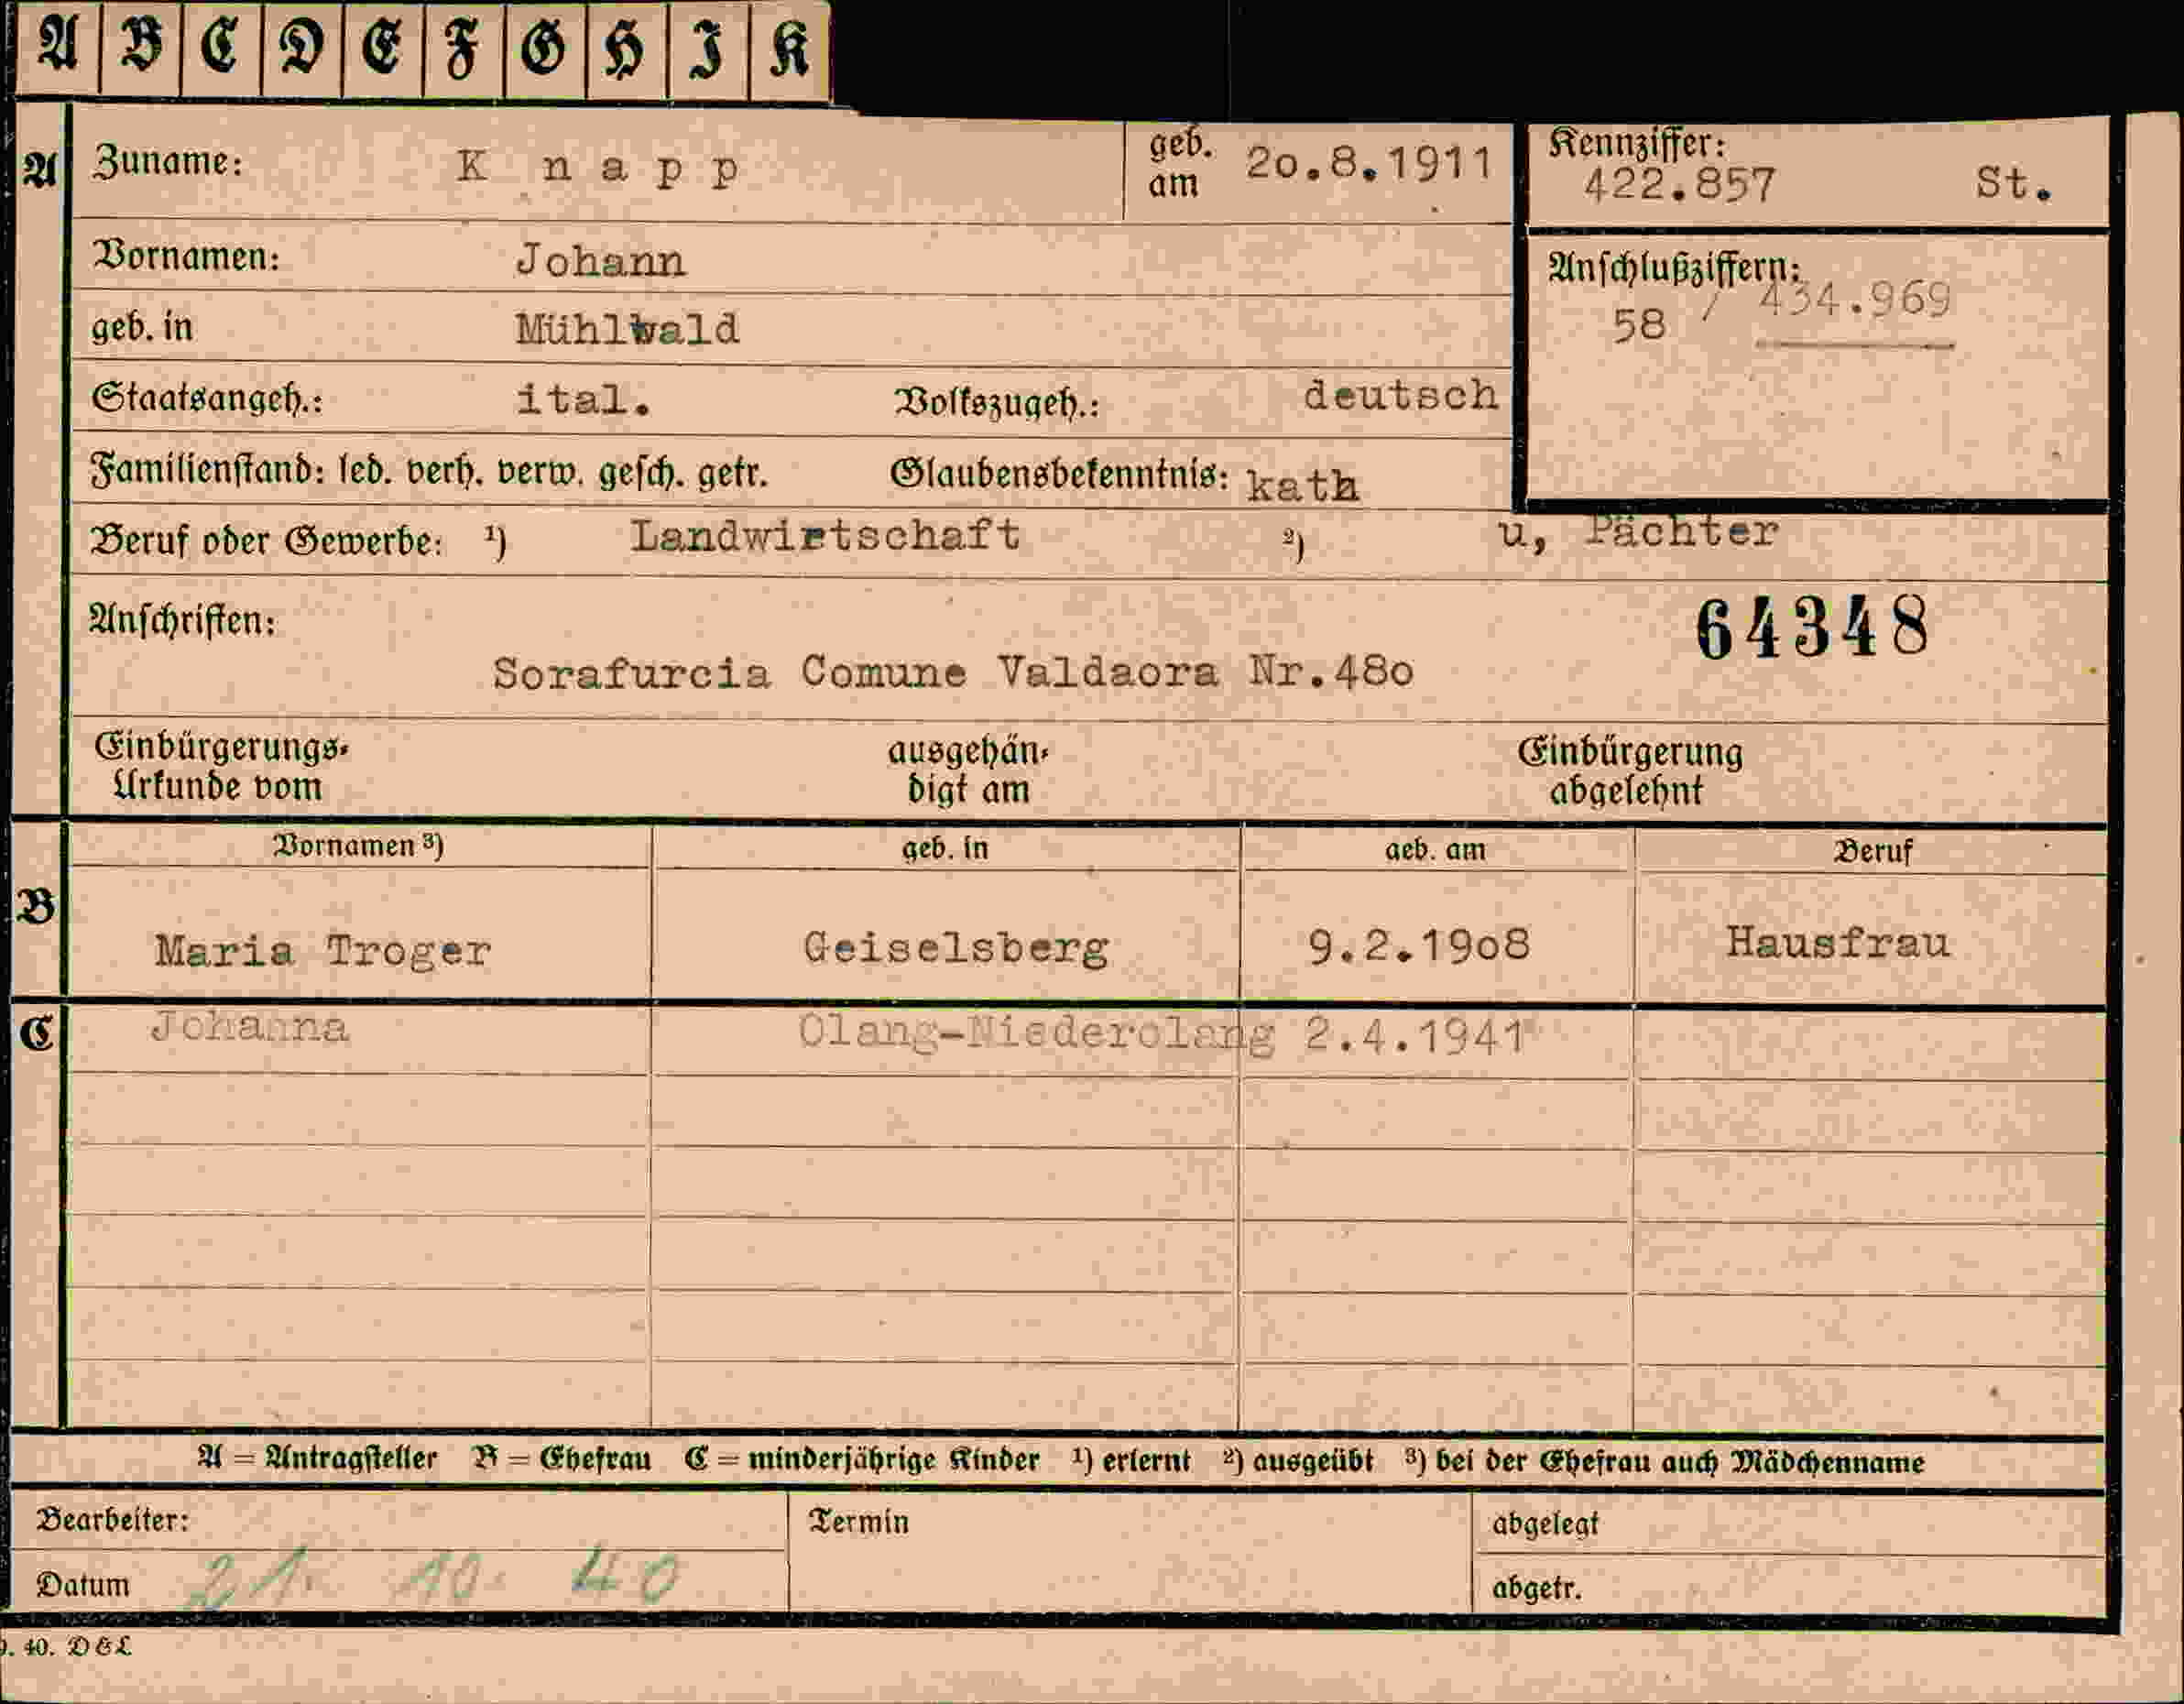 A B C D E F G H I K
A Zuname: K n a p p geb. am 20.8.1911 Kennziffer: 422.857 St.
Vornamen: Johann Anschlußziffern:
58 / 434.969
geb. in Mühlwald
Staatsangeh.: ital. Volkszugeh.: deutsch
Familienstand: led. verh. verw. gesch. getr. Glaubensbekenntnis: kath
Beruf oder Gewerbe: ¹) Landwirtschaft ²) u, Pächter
Anschriften: 64348
Sorafurcia Comune Valdaora Nr.480
Einbürgerungs- ausgehän- Einbürgerung
Urkunde vom digt am abgelehnt
Vornamen ³) geb. in geb. am Beruf
B Maria Troger Geiselsberg 9.2.1908 Hausfrau
C Johanna Olang-Niederolang 2.4.1941
A = Antragsteller B = Ehefrau C = minderjährige Kinder ¹) erlernt ²) ausgeübt ³) bei der Ehefrau auch Mädchenname
Bearbeiter: Termin abgelegt
Datum 21. 10. 40 abgetr.
. 40. DEL